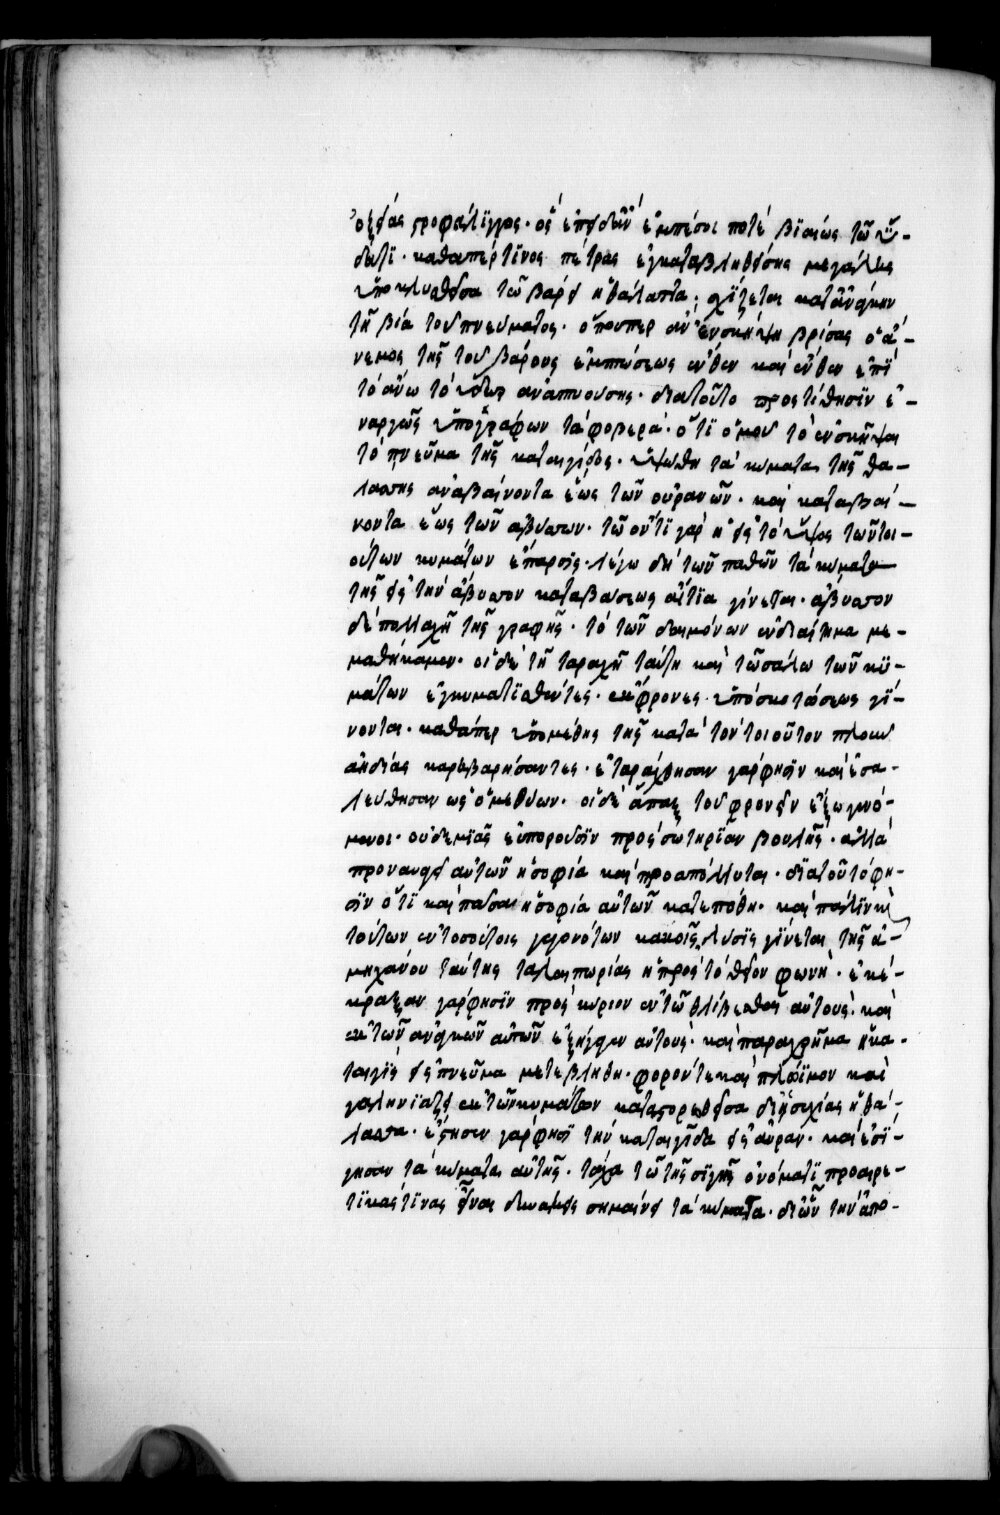 ὀξείας στροφάλιγγος· ὃς ἐπειδὰν ἐμπέσοι ποτὲ βϊαίως τῶ ὕ-
δατϊ· καθαπέρ τϊνος πέτρας ἐγκαταβληθείσης μεγάλης
ὑποκλυσθεῖσα τῶ βάρει ἡ θάλαττα· σχίζεται κατανάγκην
τῆ βία τοῦ πνεύματος· ὅπουπερ ἂν ἐνσκήψη βρίσας ὁ ἄ-
νεμος τῆς τοῦ βάρους ἐμπτώσεως ἔνθεν καὶ ἔνθεν ἐπϊ
τὸ ἄνω τὸ ὕδωρ ἀναπτυούσης· διατοῦτο προστίθησϊν ἐ-
ναργῶς ὑπογράφων τὰ φοβερά· ὅτϊ ὁμοῦ τὸ ἐνσκῆψαι
τὸ πνεῦμα τῆς καταιγίδος· ὑψώθη τὰ κύματα τῆς θα-
λάσσης ἀναβαίνοντα ἕως τῶν οὐρανῶν· καὶ καταβαί-
νοντα ἕως τῶν ἀβύσσων· τῶ ὄντϊ γὰρ ἡ εἰς τὸ ὕψος τῶν τοι-
ούτων κυμάτων ἔπαρσϊς· λέγω δὴ τῶν παθῶν τὰ κύματα
τῆς εἰς τὴν ἄβυσσον καταβάσεως αἰτϊα γίνεται· ἄβυσσον
δὲ πολλαχῆ τῆς γραφῆς· τὸ τῶν δαιμόνων ἐνδιαίτημα με-
μαθήκαμεν· οἱ δὲ τῆ ταραχῆ ταύτη καὶ τῶ σάλω τῶν κϋ-
μάτων ἐγκυματϊσθέντες· ἔκφρονες ὑπὸ σκοτώσεως γί-
νονται· καθάπερ ὑπὸ μέθης τῆς κατὰ τὸν τοιοῦτον πλοῦν
ἀηδίας καρηβαρήσαντες· ἐταράχθησαν γάρ φησϊν καὶ ἐσα-
λεύθησαν ὡς ὁ μεθύων· οἱ δὲ ἅπαξ τοῦ φρονεῖν ἔξω γινό-
μενοι· οὐδεμϊᾶς εὐποροῦσϊν πρὸς σωτηρίαν βουλῆς· ἀλλὰ
προναυαγεῖ αὐτῶν ἡ σοφία καὶ προαπόλλυται· δϊατοῦτό φη-
σϊν ὅτϊ καὶ πᾶσα ἡ σοφία αὐτῶν κατεπόθη· καὶ πάλϊν ἐπὶ
τούτων ἐν τοσούτοις γεγονότων κακοῖς λύσϊς γίνεται τῆς ἀ-
μηχάνου ταύτης ταλαιπωρίας ἡ πρὸς τὸ θεῖον φωνή· ἐκέ-
κραξαν γάρ φησϊν πρὸς κύριον ἐν τῶ θλίβεσθαι αὐτοὺς· καὶ
ἐκ τῶν ἀναγκῶν αὐτῶν ἐξήγαγεν αὐτοὺς· καὶ παραχρῆμα ἡ κα-
ταιγὶς εἰς πνεῦμα μετεβλήθη· φορόν τε καὶ πλώϊμον καὶ
γαληνϊάζει ἐκ τῶν κυμάτων καταστορεσθεῖσα δι ἡσυχίας ἡ θά-
λασσα· ἔστησεν γάρ φησϊ τὴν καταιγίδα εἰς αὔραν· καὶ ἐσί-
γησαν τὰ κύματα αὐτῆς· τάχα τῶ τῆς σϊγῆς ὀνόματϊ προαιρε-
τϊκάς τϊνας εἶναι δυνάμεις σημαίνει τὰ κύματα· δι ὧν τὴν ἀπο-